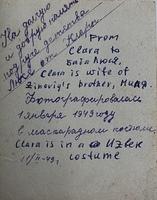 На долгую
и добрую память
подруге детства
Люсе от Клары
From
Clara to
Баба Люся.
Clara is wife of
Zinovig's brother, Миля.
Фотографировалась
1 января 1949 году
в маскарадном костюме
Clara is in a Uzbek
costume
11/II-49г.